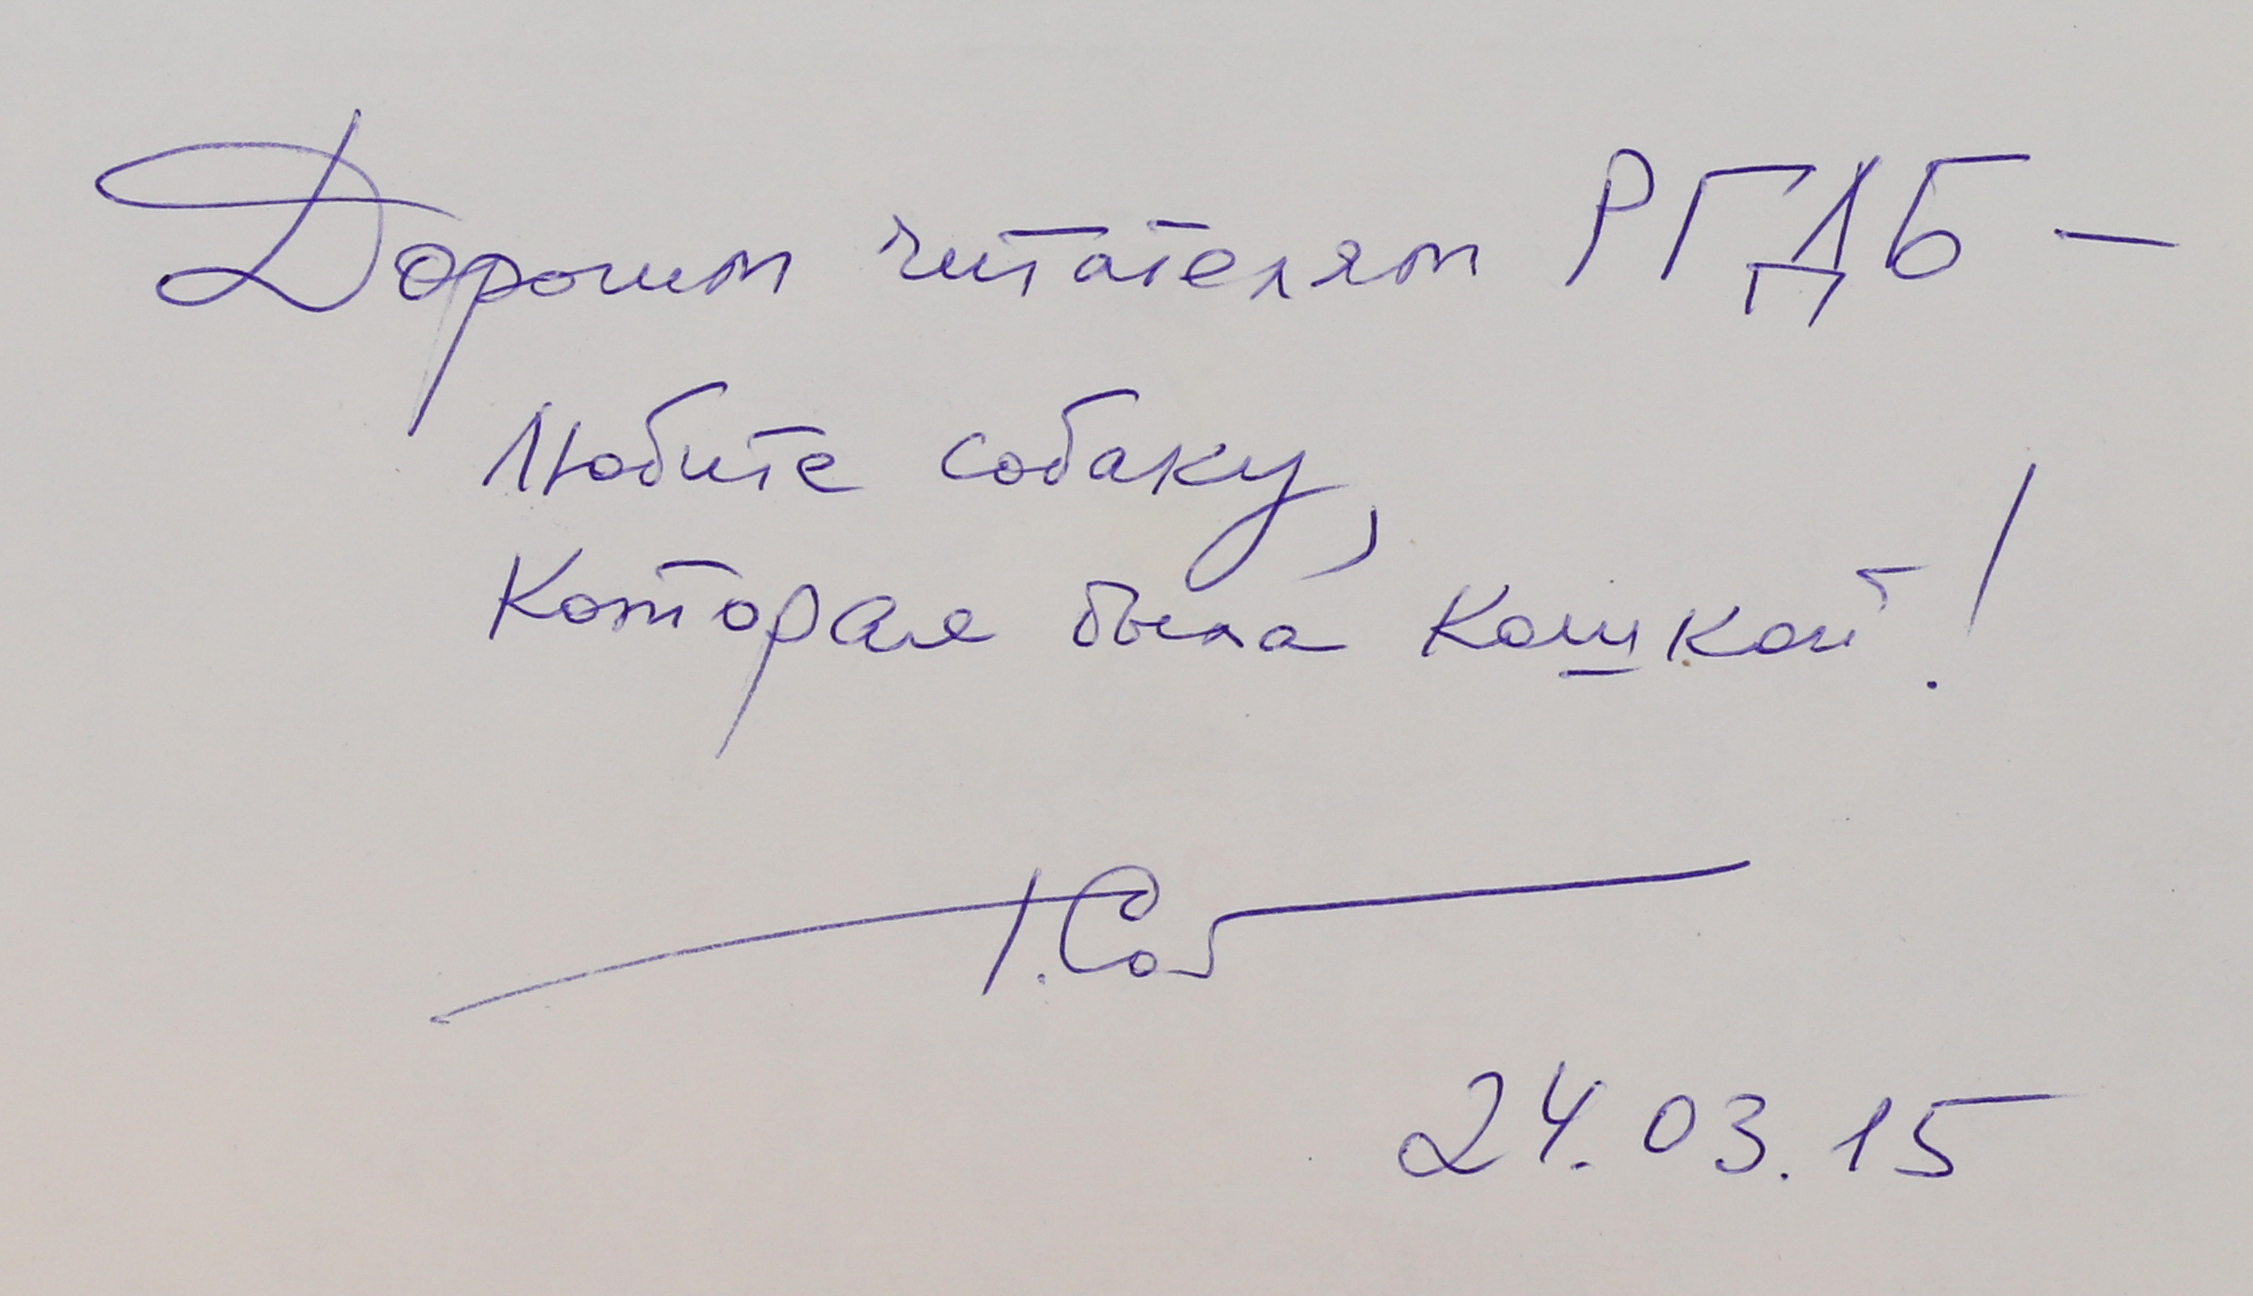 Дорогим читателям РГДБ —
Любите собаку,
Которая была кошкой!
24.03.15